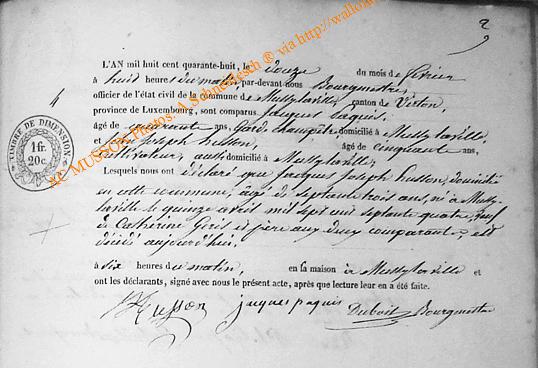 2
L'AN mil huit cent quarante-huit, le douze du mois de février
à huit heures du matin, par-devant nous Bourgmestre,
officier de l'état civil de la commune de Mussy la ville, canton de Virton,
province de Luxembourg, sont comparus Jacques Paquis,
âgé de quarante ans, Garde champêtre, domicilié à Mussy la ville,
et Jean Joseph Husson, âgé de cinquante ans,
cultivateur, aussi domicilié à Mussy la ville,
Lesquels nous ont déclaré que Jacques Joseph Husson, domicilié
en cette commune, âgé de septante trois ans, né à Mussy
la ville le quinze avril mil sept cent septante quatre, veuf
de Catherine et père aux deux comparants, est
décédé aujourd'hui,
à six heures du matin, en sa maison à Mussy la ville et
ont les déclarants, signé avec nous le présent acte, après que lecture leur en a été faite.
Husson jacques paquis Duboit Bourgmestre
TIMBRE DE DIMENSION
1 fr.
20 c.
AC MUSSON Photos. A. Schne @ via http://wallo